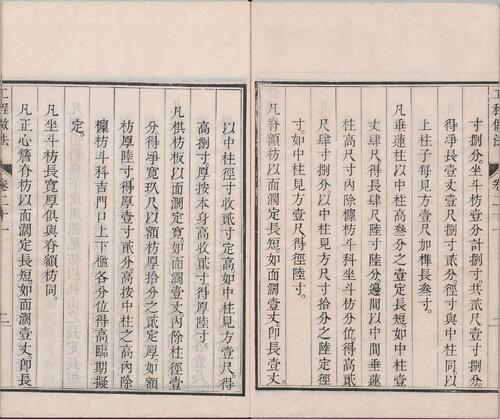 工程做法 卷二十一
寸捌分。坐斗枋壹分計捌寸。共貳尺壹寸捌分。
得凈長壹丈壹尺捌寸貳分。徑寸與中柱同。以
上柱子每見方壹尺加榫長叁寸。
凡垂蓮柱以中柱高叁分之壹定長短。如中柱壹
丈肆尺。得長肆尺陸寸陸分。邊間以中間垂蓮
柱高尺寸內除檁枋斗科坐斗枋分位得高貳
尺肆寸捌分。以中柱見方尺寸拾分之陸定徑
寸。如中柱見方壹尺。得徑陸寸。
凡脊額枋以面濶定長短。如面濶壹丈。即長壹丈。
以中柱徑寸收貳寸定高。如中柱見方壹尺。得
高捌寸。厚按本身高收貳寸。得厚陸寸
凡棋枋板以面濶定寬。如面濶壹丈。內除柱徑壹
分。得凈寬玖尺。以額枋厚拾分之貳定厚。如額
枋厚陸寸。得厚壹寸貳分。高按中柱之高內除
檁枋斗科吉門口上下檻各分位得高。臨期擬
定。
凡坐斗枋長寬厚俱與脊額枋同。
凡正心簷脊枋以面濶定長短。如面濶壹丈。即長
工程做法 卷二十一 二